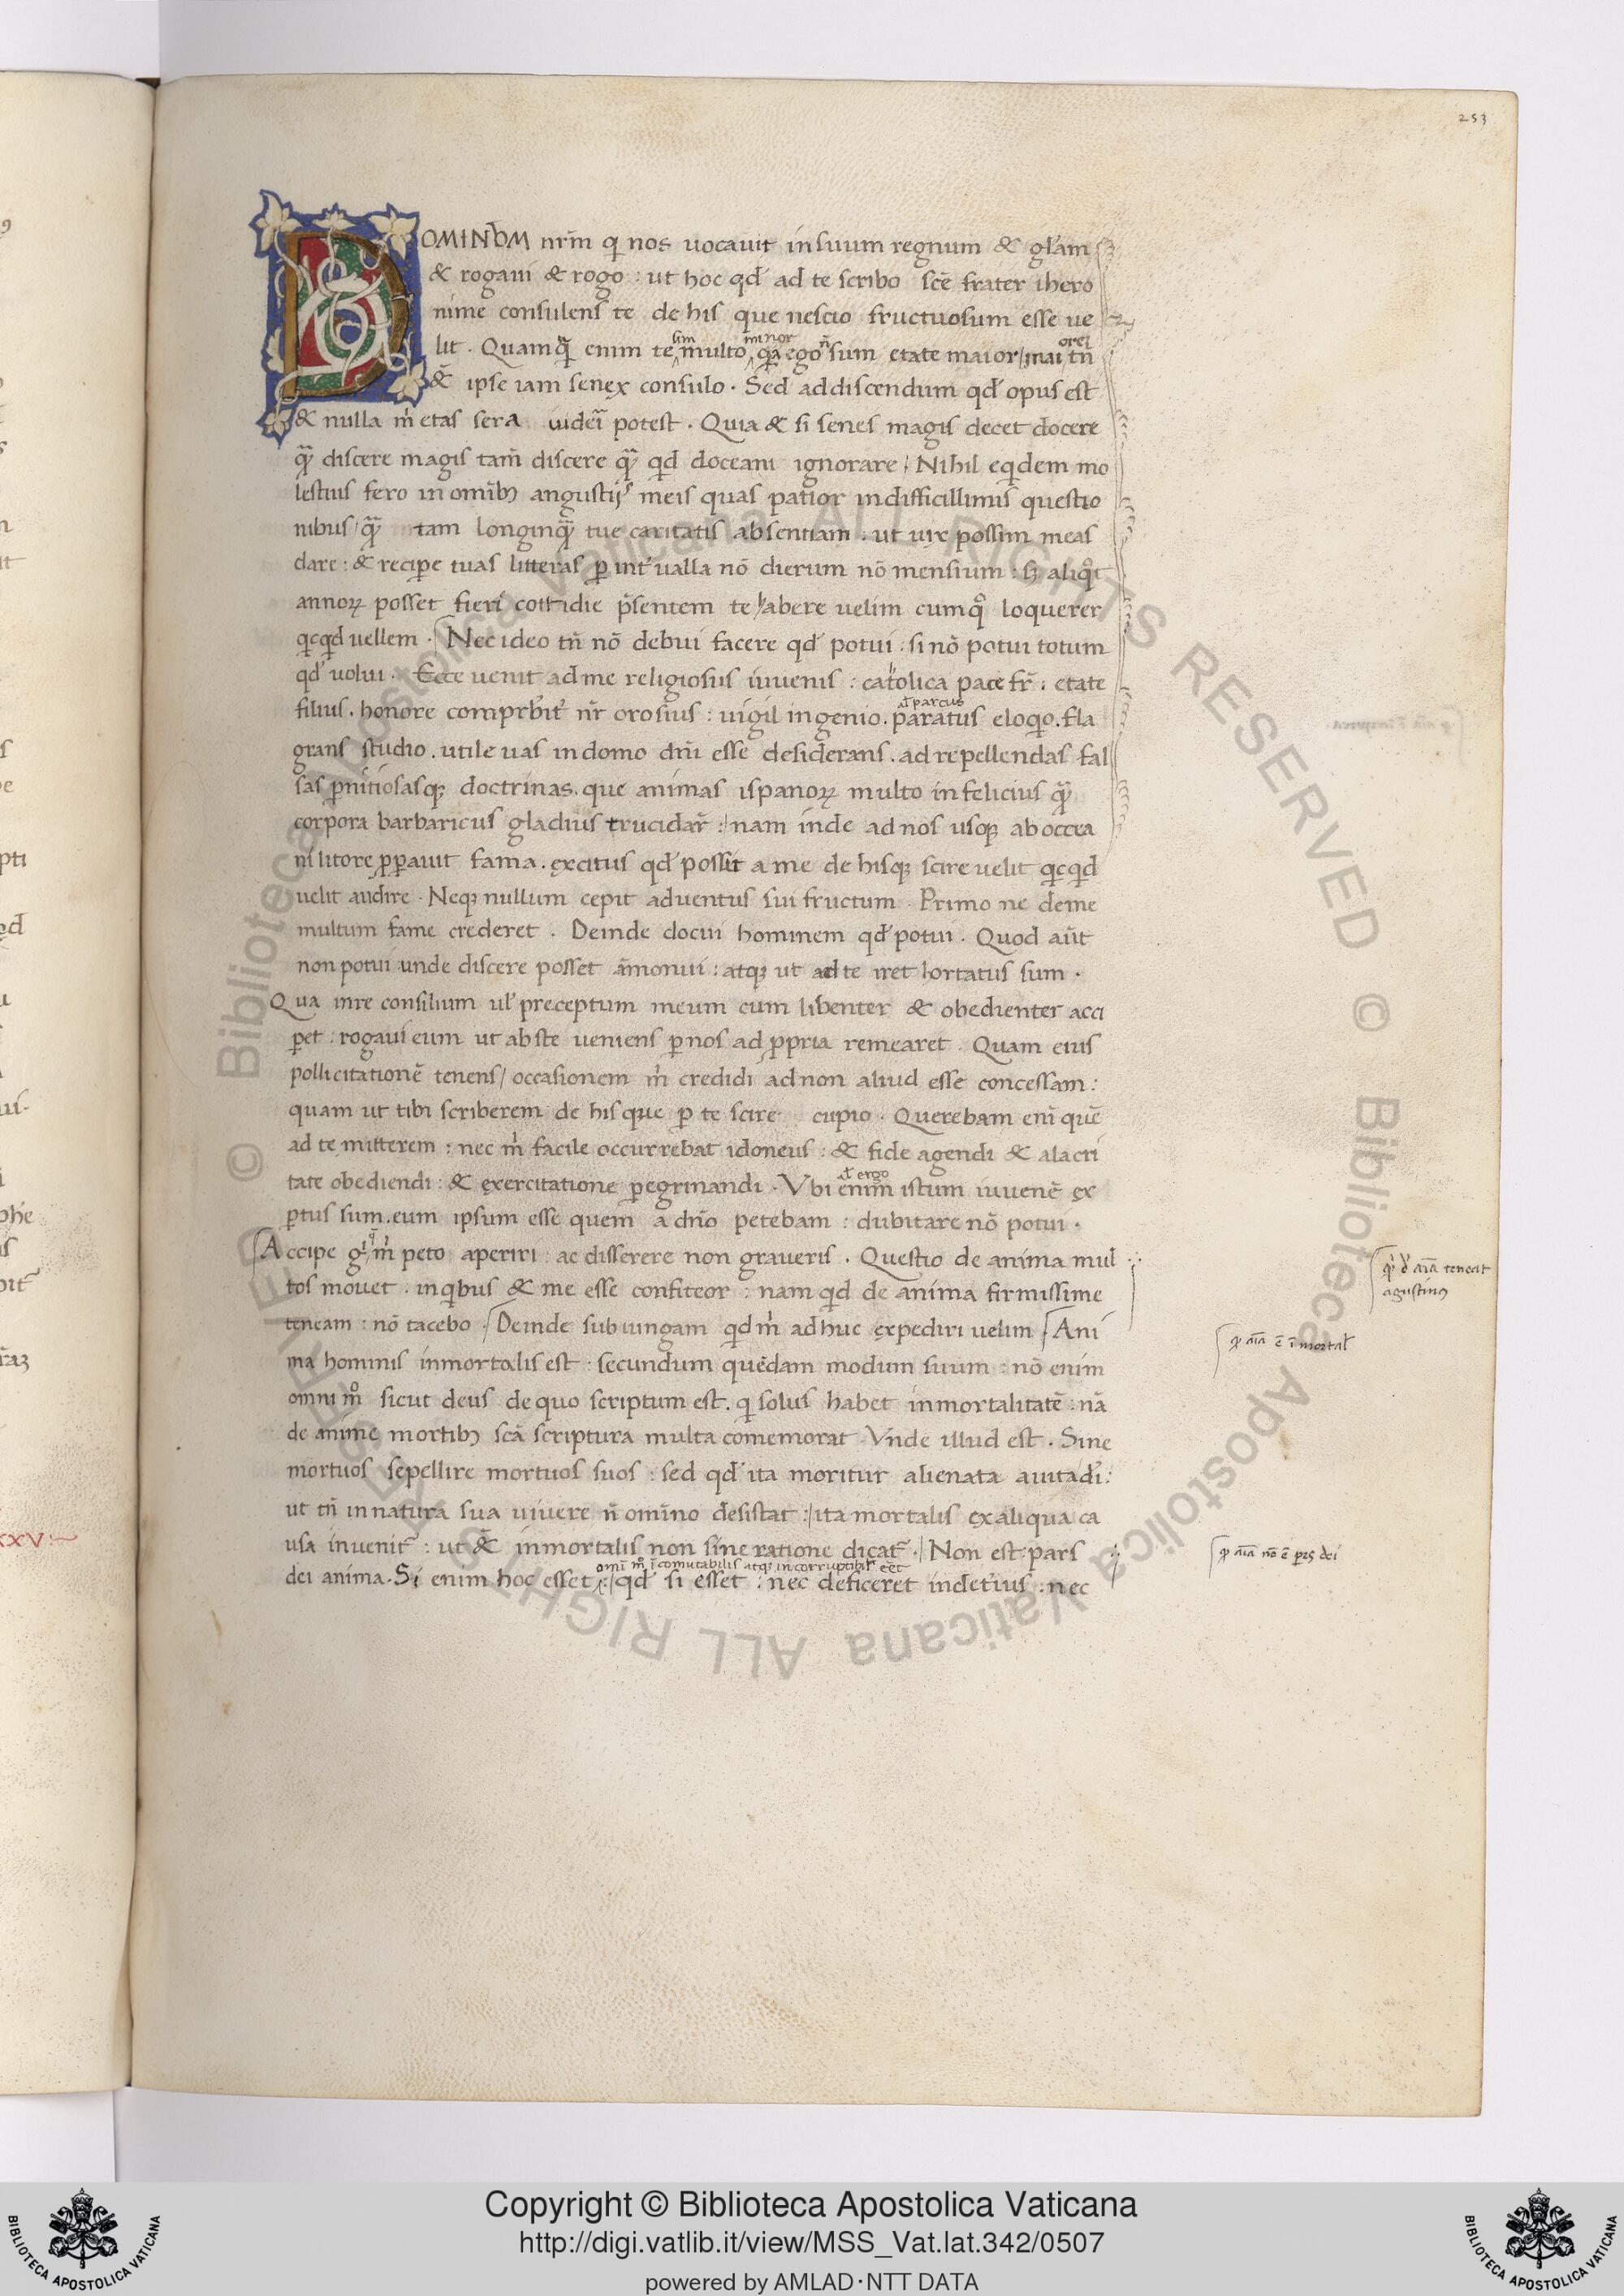 253
DOMINVM nr̄m q nos uocauit in suum regnum & gl̄am
& rogaui & rogo : ut hoc qd̄ ad te scribo sc̄e frater ihero
nime consulens te de his que nescio fructuosum esse ue
lit . Quamq̄ enim te multo q̄ ego sum etate maior / mai tn̄
sim minor n̄ orē
&̄ ipse iam senex consulo . Sed addiscendum qd̄ opus est
& nulla m̄ etas sera uideri potest . Quia & si senes magis decet docere
q̄ discere magis tam̄ discere q̄ qd doceant ignorare / Nihil eqdem mo
lestius fero in omīb; angustijs meis quas patior in difficillimis questio
nibus / q̄ tam longinq̄ tue caritatis absentiam : ut uix possim meas
dare : & recipe tuas litteras p int̄ualla nō dierum nō mensium : s; aliqt̄
annoꝝ posset fieri cottidie p̄sentem te habere uelim cumqͦ loquerer
qcqd uellem . Nec ideo tn̄ nō debui facere qd̄ potui : si nō potui totum
qd̄ uolui . Ecce uenit ad me religiosus iuuenis : catolica pace fr̄ : etate
filius . honore comprb̄it̄ nr̄ orosius : uigil ingenio . paratus eloqo . fla
al̄ parcus
grans studio . utile uas in domo dn̄i esse desiderans . ad repellendas fal
sas pnitiosasq; doctrinas . que animas ispanoꝝ multo infelicius q̄
corpora barbaricus gladius trucidar̄ : / nam inde ad nos usq; ab occea
ni litore ppauit fama . excitus qd̄ possit a me de hisq; scire uelit qcqd
uelit audire . Neq; nullum cepit aduentus sui fructum . Primo ne deme
multum fame crederet . Deinde docui hominem qd̄ potui . Quod aūt
non potui unde discere posset āmonui : atq; ut ad te iret hortatus sum .
Qua in re consilium ul̄ preceptum meum cum libenter & obedienter acci
pet : rogaui eum ut abste ueniens p nos ad ppria remearet . Quam eius
pollicitationē tenens / occasionem m̄ credidi ad non aliud esse concessam :
quam ut tibi scriberem de his que p te scire cupio . Querebam enī quē
ad te mitterem : nec m̄ facile occurrebat idoneus : & fide agendi & alacri
tate obediendi : & exercitatione pegrinandi . Vbi enim istum iuuenē ex
al̄ ergo
ptus sum . eum ipsum esse quem a dn̄o petebam : dubitare nō potui .
Accipe g m̄ peto aperiri : ac disserere non graueris . Questio de anima mul
tos mouet . in qbus & me esse confiteor : nam qd de anima firmissime
teneam : nō tacebo . Deinde subiungam qd m̄ adhuc expediri uelim Ani
ma hominis inmortalis est : secundum quēdam modum suum : nō enim
omni mͦ sicut deus de quo scriptum est . q solus habet inmortalitatē : nā
de anime mortib; scā scriptura multa comemorat . Vnde illud est . Sine
mortuos sepellire mortuos suos : sed qd̄ ita moritur alienata a uita di :
ut tn̄ in natura sua uiuere n̄ omīno desistat : / ita mortalis ex aliqua ca
usa inuenit̄ : ut &̄ inmortalis non sine ratione dicat̄ . / Non est pars
dei anima . Si enim hoc esset : / qd̄ si esset : nec deficeret in det̄ius : nec
omī mͦ īcomutabilis atq; incorruptibil̄ eēt
q d̄ aīa teneat
agustinus
q aīa ē īmortal̄
q aīa nō ē ps dei
Copyright © Biblioteca Apostolica Vaticana
http://digi.vatlib.it/view/MSS_Vat.lat.342/0507
powered by AMLAD·NTT DATA
BIBLIOTECA APOSTOLICA VATICANA
BIBLIOTECA APOSTOLICA VATICANA
© Biblioteca Apostolica Vaticana ALL RIGHTS RESERVED © Biblioteca Apostolica Vaticana ALL RIGHTS RESERVED